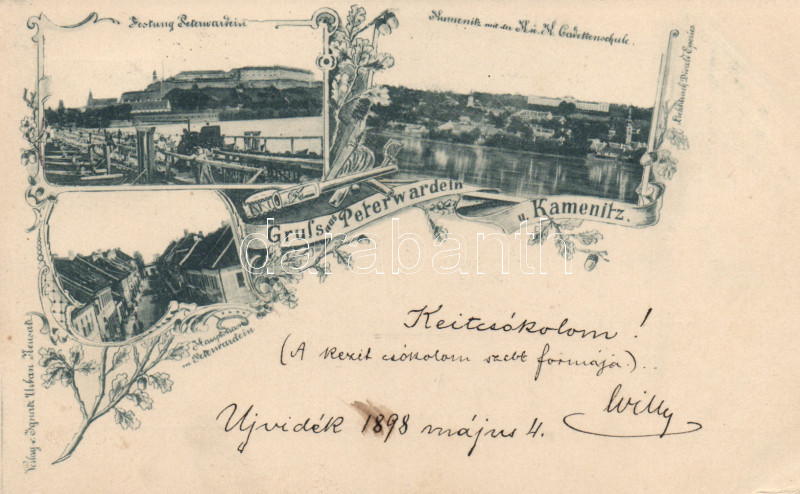 Festung Peterwardein
Kamenitz mit der K. u. K. Cadettenschule.
Lichtdruck Divald Eperies
Gruſs aus Peterwardein
u. Kamenitz.
darabanth
Hauptstrasse
in Peterwardein
Verlag v. Ignatz Urban Neusatz
Keitcsókolom!
(A kezit csókolom szebb formája)..
Willy
Ujvidék 1898 május 4.